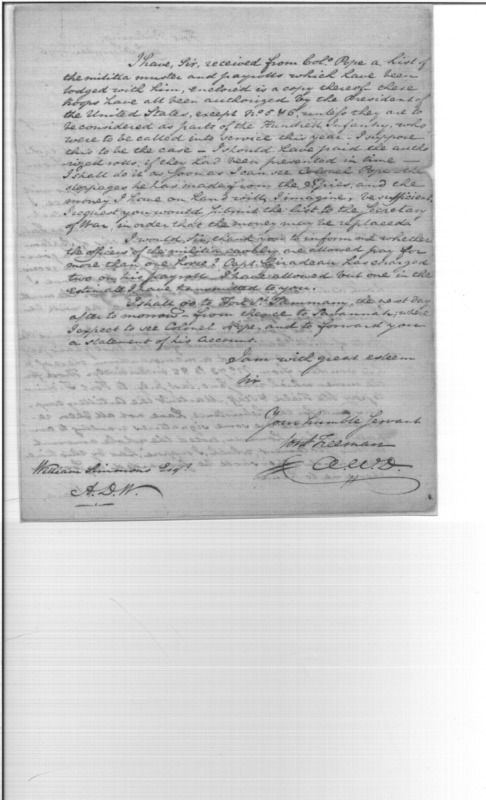 I have, Sir, received from Col.o Pope a List of
the militia muster and payrolls which have been
lodged with him, enclosed is a copy thereof - these
troops have all been authorized by the President of
the United States, except No. 5 & 6, unless they are to
be considered as parts of the Hundred Infantry, who
were to be called into service this year - I suppose
this to be the case - I should have paid the autho
rized rolls, if they had been presented in time -
I shall do it as soon as I can see Colonel Pope - the
stoppages he has made from the and the
money I have on hand will, I imagine, be sufficient,
I request you would submit the list to the Secretary
of War, in order that the money may be replaced.
I would, Sir, thank you to inform me whether
the officers of the militia cavalry are allowed pay for
more than one horse? Capt. Giradeau has charged
two on his payroll - I have allowed but one in the
estimate I have transmitted to you.
I shall go to Fort St. Tammany, the next day
after to morrow - from thence to Savannah, where
I expect to see Colonel Pope, and to forward you
a statement of his account.
I am with great esteem
Sir
Your humble Servant
Const Freeman
A.W.D.
William Simmons Esqr.
A.D.W.